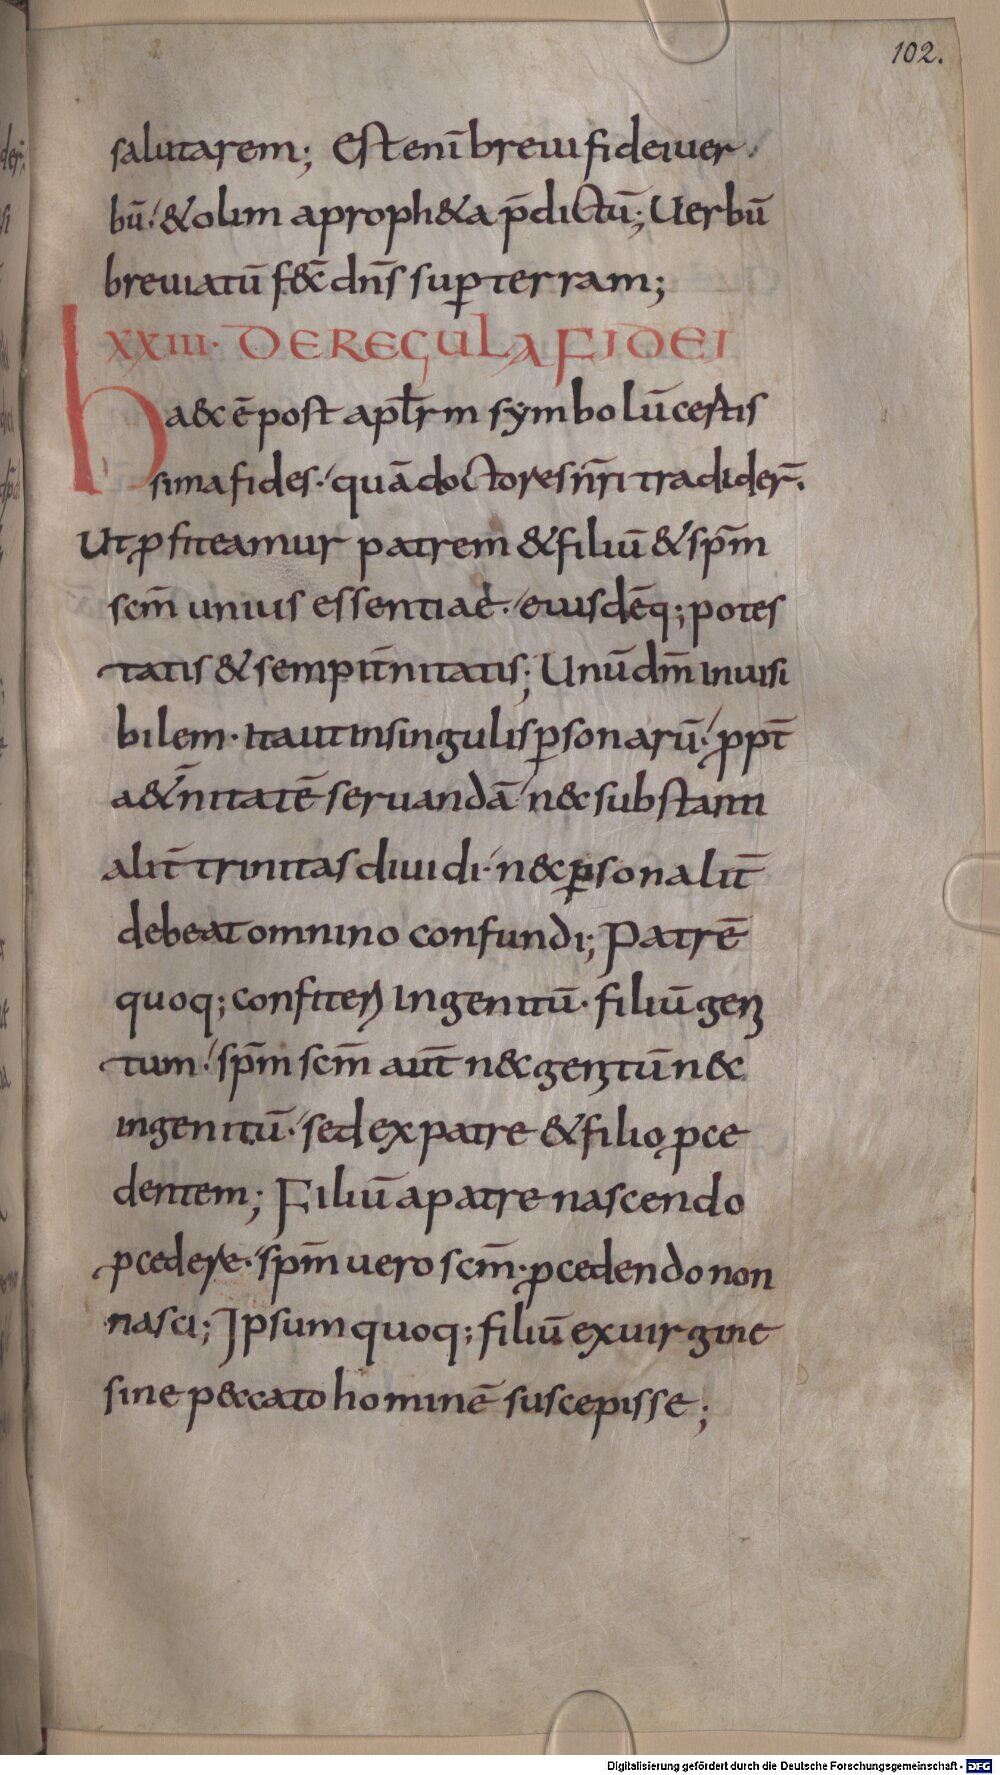 102.
salutarem; Est enī breui fidei uer
bū. & olim a proph&a p̄dictū; Uerbū
breuiatū f&̄ dn̄s sup terram;
XXIII. DE REGULA FIDEI
ha&c ē post apl̄rm symbolū certis
sima fides. quā doctores nr̄i tradider̄.
Ut ꝓfiteamur patrem & filiū & sp̄m
scm̄ unius essentiae. eiusdēq; potes
tatis & sempit̄nitatis; Unū dm̄ inuisi
bilem. ita ut in singulis ꝑsonarū. ꝓpt̄
a&̄nitatē seruandā n&c substanti
alit̄ trinitas diuidi. n&c ꝑsonalit̄
debeat omnino confundi; Patrē
quoq; confitem̄ ingenitū. filiū geni
tum. sp̄m scm̄ aut̄ n&c genitū n&c
ingenitū. sed ex patre & filio ꝓce
dentem; Filiū a patre nascendo
ꝓcedere. sp̄m uero scm̄. ꝓcedendo non
nasci; Ipsum quoq; filiū ex uirgine
sine p&ccato hominē suscepisse;
Digitalisierung gefördert durch die Deutsche Forschungsgemeinschaft - DFG